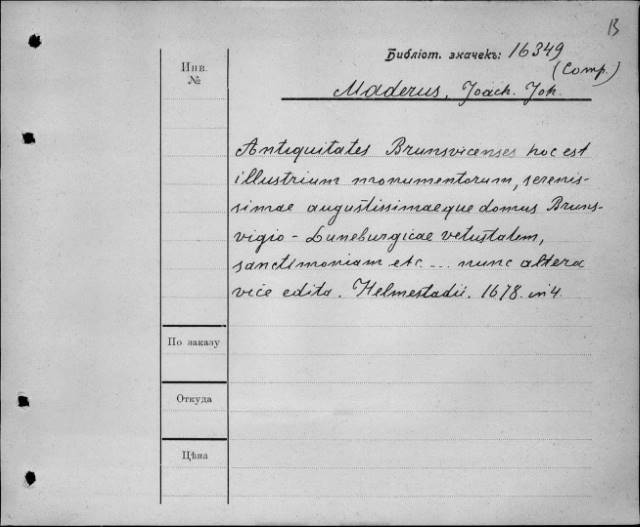 B
Библіот. значекъ: 16349
(Comp.)
Инв.
№
Maderus, Joach. Joh.
Antiquitates Brunsvicenses hoc est
illustrium monumentorum, serenis-
simae augustissimaeque domus Bruns-
vigio - Luneburgicae vetustatem,
sanctimoniam etc ... nunc altera
vice edita. Helmestadii. 1678. in 4.
По заказу
Откуда
Цѣна